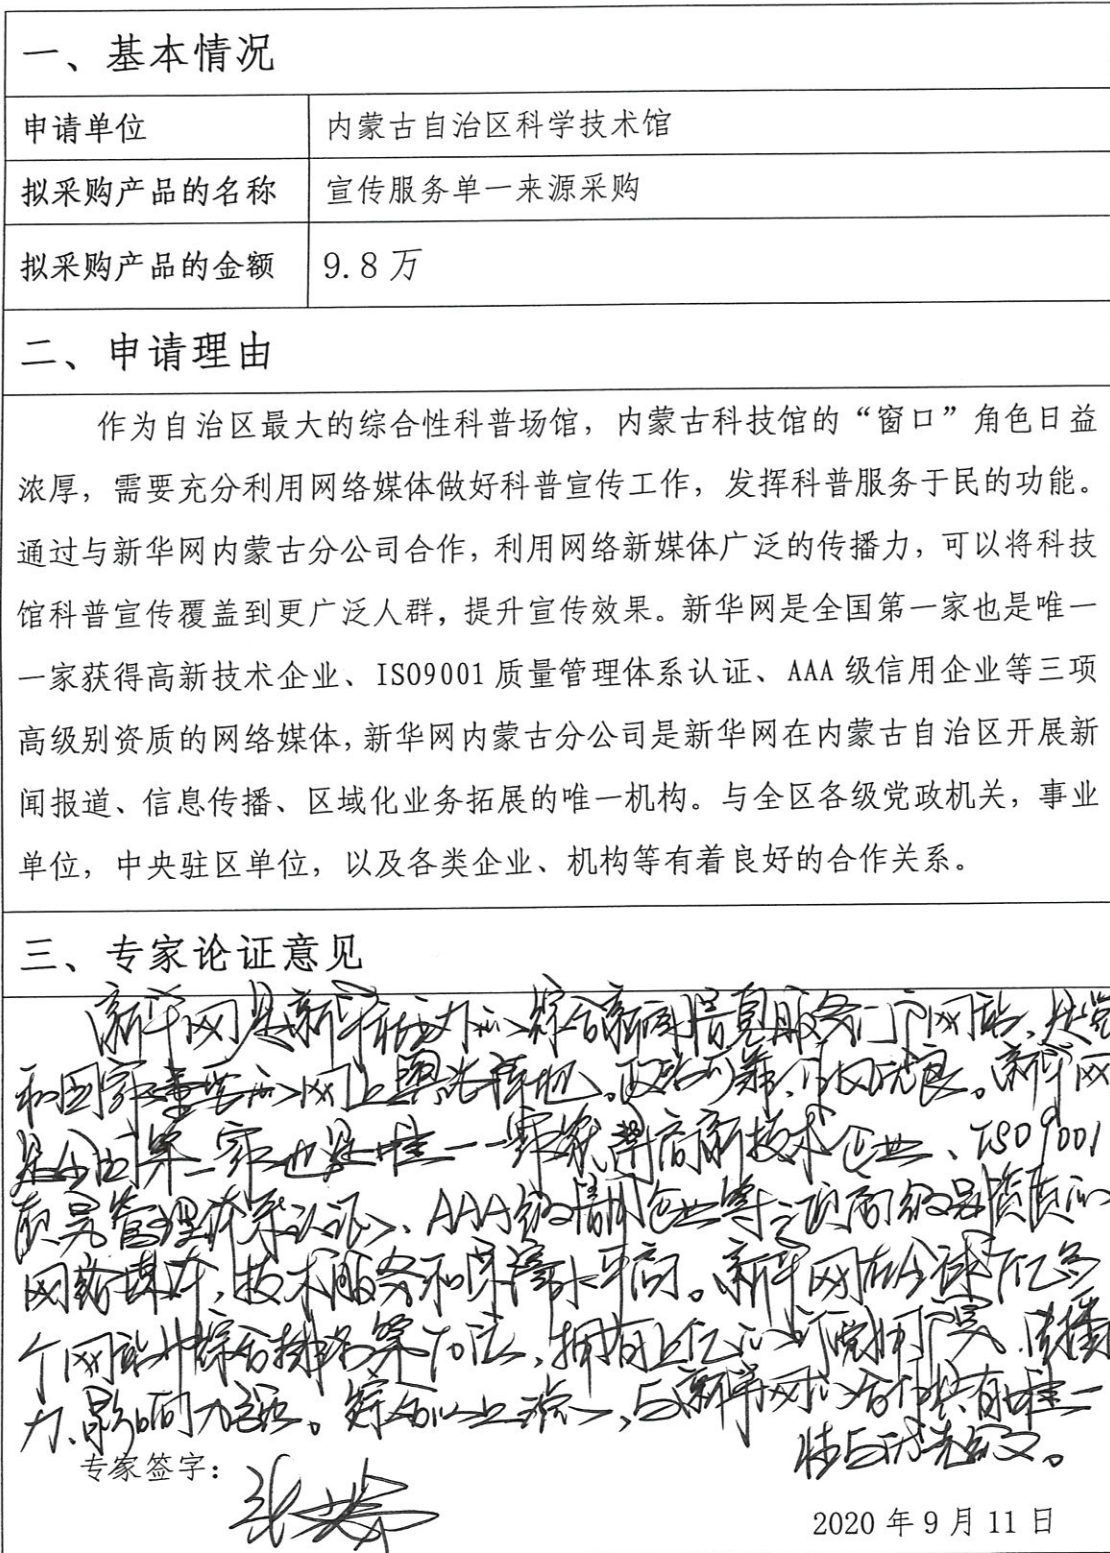 一、基本情况
申请单位 内蒙古自治区科学技术馆
拟采购产品的名称 宣传服务单一来源采购
拟采购产品的金额 9.8万
二、申请理由
作为自治区最大的综合性科普场馆，内蒙古科技馆的“窗口”角色日益
浓厚，需要充分利用网络媒体做好科普宣传工作，发挥科普服务于民的功能。
通过与新华网内蒙古分公司合作，利用网络新媒体广泛的传播力，可以将科技
馆科普宣传覆盖到更广泛人群，提升宣传效果。新华网是全国第一家也是唯一
一家获得高新技术企业、ISO9001质量管理体系认证、AAA级信用企业等三项
高级别资质的网络媒体，新华网内蒙古分公司是新华网在内蒙古自治区开展新
闻报道、信息传播、区域化业务拓展的唯一机构。与全区各级党政机关，事业
单位，中央驻区单位，以及各类企业、机构等有着良好的合作关系。
三、专家论证意见
新华网是新华社主办的综合新闻信息服务门户网站，是党
和国家重要的网上舆论阵地。新华网
是全国第一家也是唯一一家获得高新技术企业、ISO9001
质量管理体系认证、AAA级信用企业等三项高级别资质的
网络媒体，技术服务和保障水平高。新华网在全球
个网站中综合排名第70位，拥有上亿的，传播
力、影响力强。综合以上，与新华网的合作具有唯一
性与
专家签字：
2020年9月11日